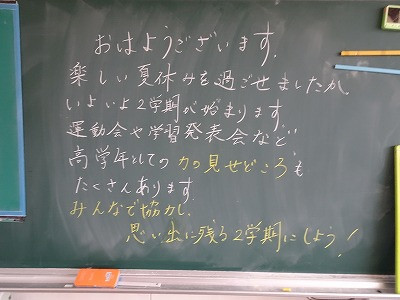 おはようございます.
楽しい夏休みを過ごせましたか.
いよいよ2学期が始まります
運動会や学習発表会など
高学年としての力の見せどころも
たくさんあります.
みんなで協力し
思い出に残る2学期にしよう!